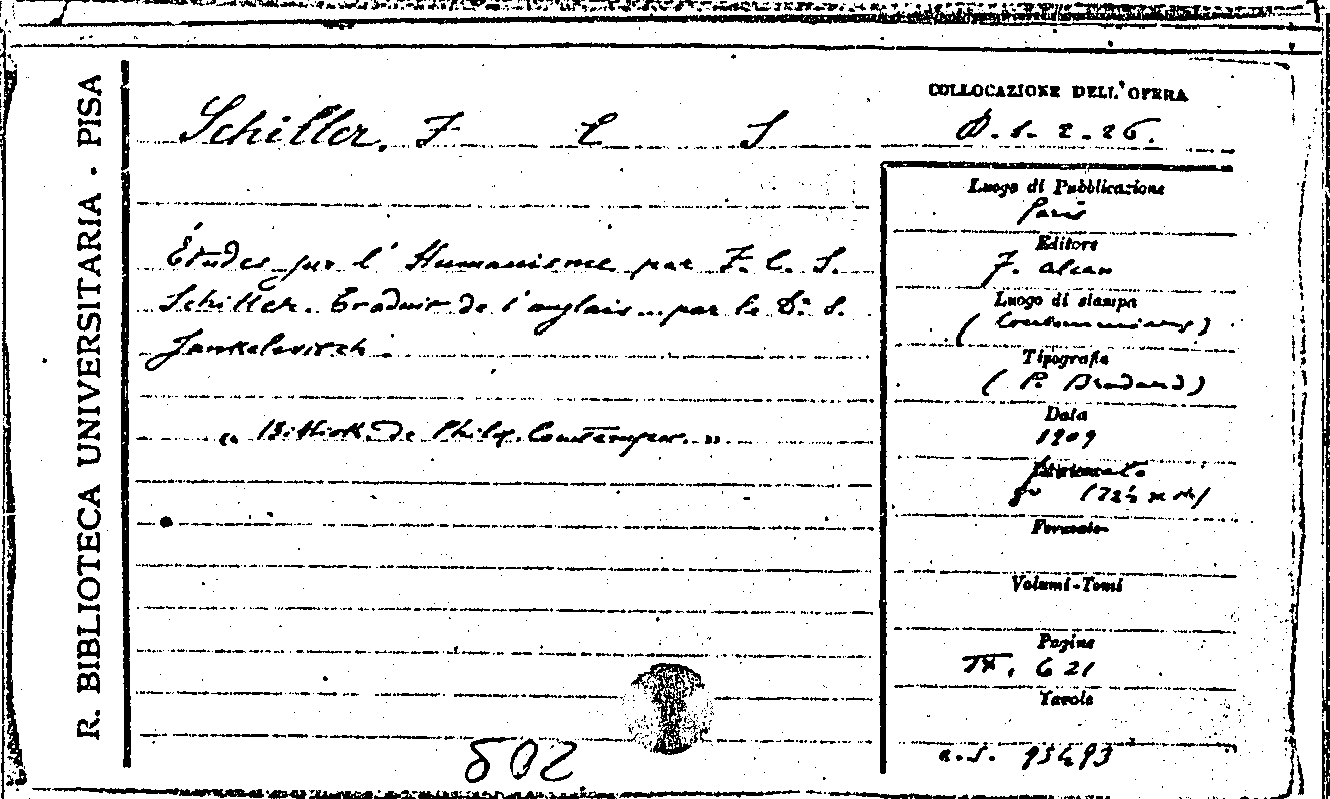 R. BIBLIOTECA UNIVERSITARIA - PISA
Schiller, F C S
Études sur l'Humanisme par F. C. S.
Schiller. Traduit de l'anglais... par le Dr. S.
Jankelevitch.
« Biblioth. de Philos. Contempor. »
802
COLLOCAZIONE DELL'OPERA
D. s. 2. 26.
Luogo di Pubblicazione
Paris
Editore
F. Alcan
Luogo di stampa
(Coulommiers)
Tipografia
(P. Brodard)
Data
1909
8°
Formato
Volumi-Tomi
Pagine
IX, 621
Tavole
a.s. 93493